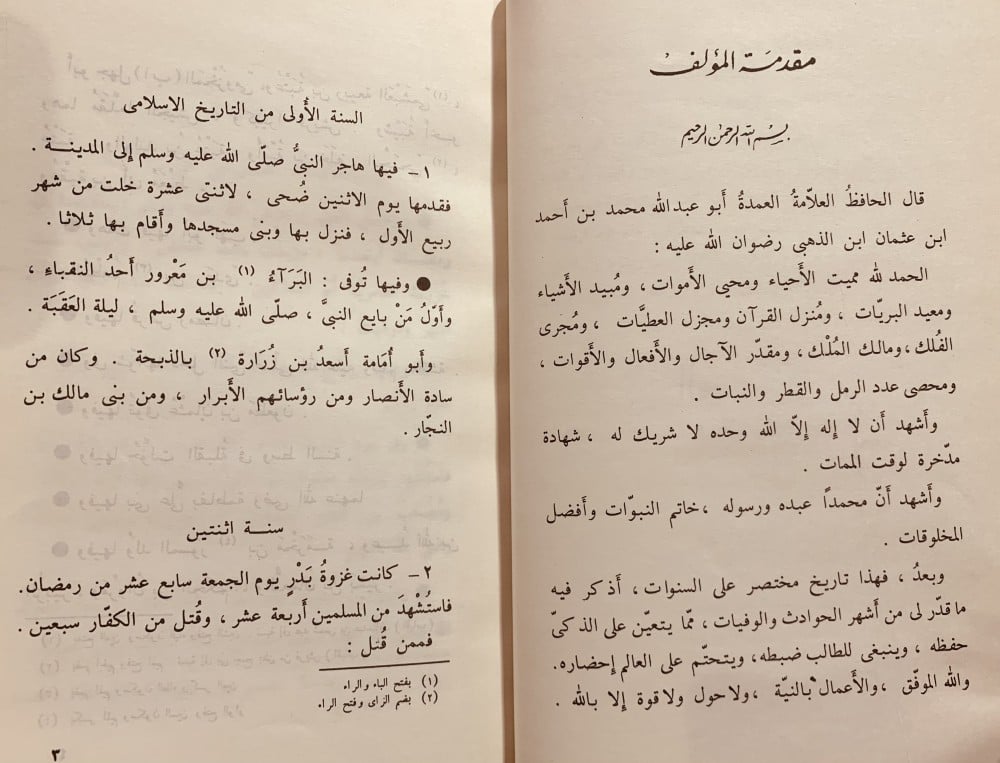 مقدمة المؤلف
بسم الله الرحمن الرحيم
قال الحافظُ العلاّمةُ العمدةُ أبو عبدالله محمد بن أحمد
ابن عثمان ابن الذهبى رضوان الله عليه :
الحمد لله مميت الأحياء ومحيى الأموات ، ومُبيد الأشياء
ومعيد البريّات ، ومُنزل القرآن ومجزل العطيَّات ، ومُجرى
الفُلك ، ومالك المُلْك ، ومقدّر الآجال والأفعال والأقوات ،
ومحصى عدد الرمل والقطر والنبات .
وأشهد أن لا إله إلاّ الله وحده لا شريك له ، شهادة
مدّخرة لوقت الممات .
وأشهد أنّ محمداً عبده ورسوله ، خاتم النبوّات وأفضل
المخلوقات .
وبعدُ ، فهذا تاريخ مختصر على السنوات ، أذكر فيه
ما قدّر لى من أشهر الحوادث والوفيات ، ممّا يتعيّن على الذكىّ
حفظه ، وينبغى للطالب ضبطه ، ويتحتّم على العالم إحضاره.
والله الموفّق ، والأعمال بالنيّة ، ولا حول ولا قوة إلا بالله .
السنة الأولى من التاريخ الاسلامى
١ – فيها هاجر النبىُّ صلّى الله عليه وسلم إلى المدينـــة .
فقدمها يوم الاثنين ضُحى ، لاثنتى عشرة خلت من شهر
ربيع الأول ، فنزل بها وبنى مسجدها وأقام بها ثلاثا .
● وفيها تُوفى : البَرَآءُ (١) بن مَعْرور أحدُ النقباءِ ،
وأوّلُ مَنْ بايع النبىَّ ، صلّى الله عليه وسلم ، ليلة العَقَبَة .
وأبو أُمَامة أسعدُ بن زُرَارة (٢) بالذبحة . وكان من
سادة الأنصار ومن رؤسائهم الأبرار ، ومن بنى مالك بن
النجّار .
سنة اثنتين
٢ – كانت غزوةُ بَدْرٍ يوم الجمعة سابع عشر من رمضان.
فاستُشْهدَ من المسلمين أربعة عشر ، وقُتل من الكفّار سبعين .
فممن قُتل :
(١) بفتح الباء والراء
(٢) بضم الزاى وفتح الراء.
٣